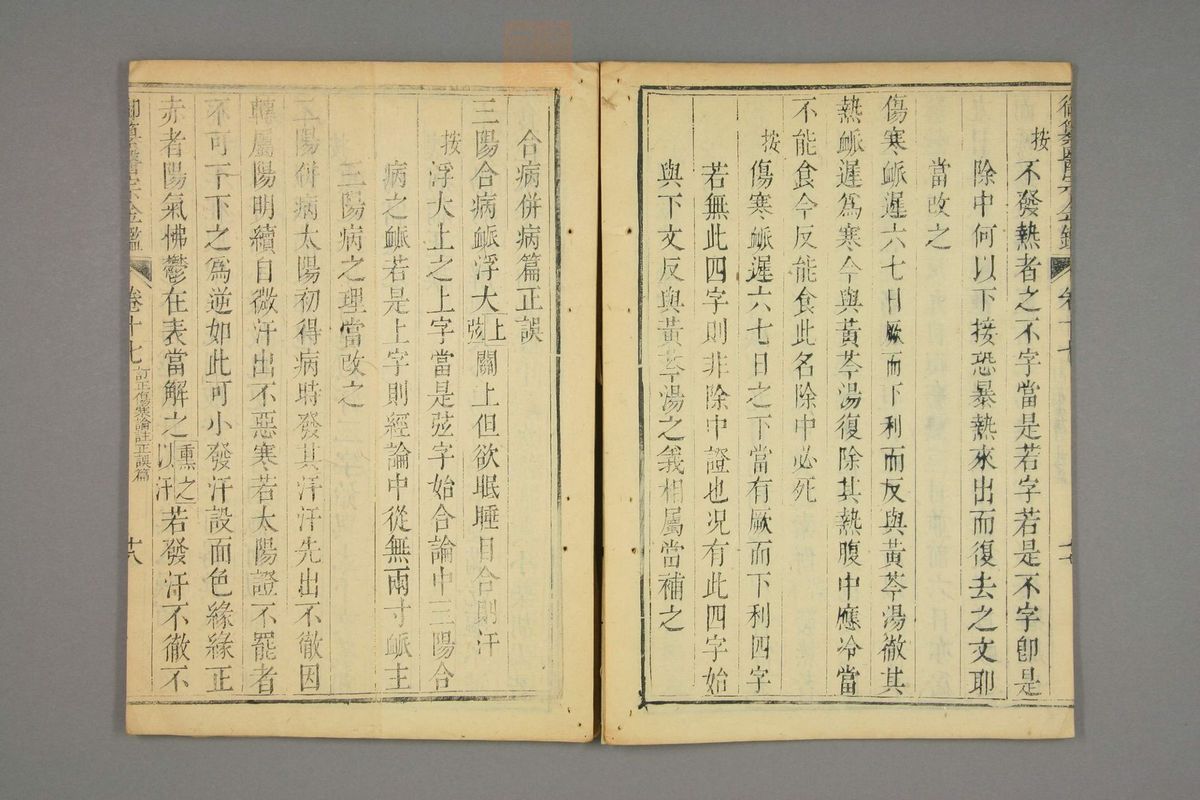 按不發熱者之不字當是若字若是不字卽是
除中何以下接恐暴熱來出而復去之文耶
當改之
傷寒脈遲六七日厥而下利而反與黃芩湯徹其
熱脈遲爲寒今與黃芩湯復除其熱腹中應冷當
不能食今反能食此名除中必死
按傷寒脈遲六七日之下當有厥而下利四字
若無此四字則非除中證也况有此四字始
與下文反與黃芩湯之義相屬當補之
合病併病篇正誤
三陽合病脈浮大上弦關上但欲眠睡目合則汗
按浮大上之上字當是弦字始合論中三陽合
病之脈若是上字則經論中從無兩寸脈主
三陽病之理當改之
二陽併病太陽初得病時發其汗汗先出不徹因
轉屬陽明續自微汗出不惡寒若太陽證不罷者
不可下下之爲逆如此可小發汗設面色緣緣正
赤者陽氣怫鬱在表當解之熏之以汗若發汗不徹不
卷十七 訂正傷寒論註正誤篇 十八